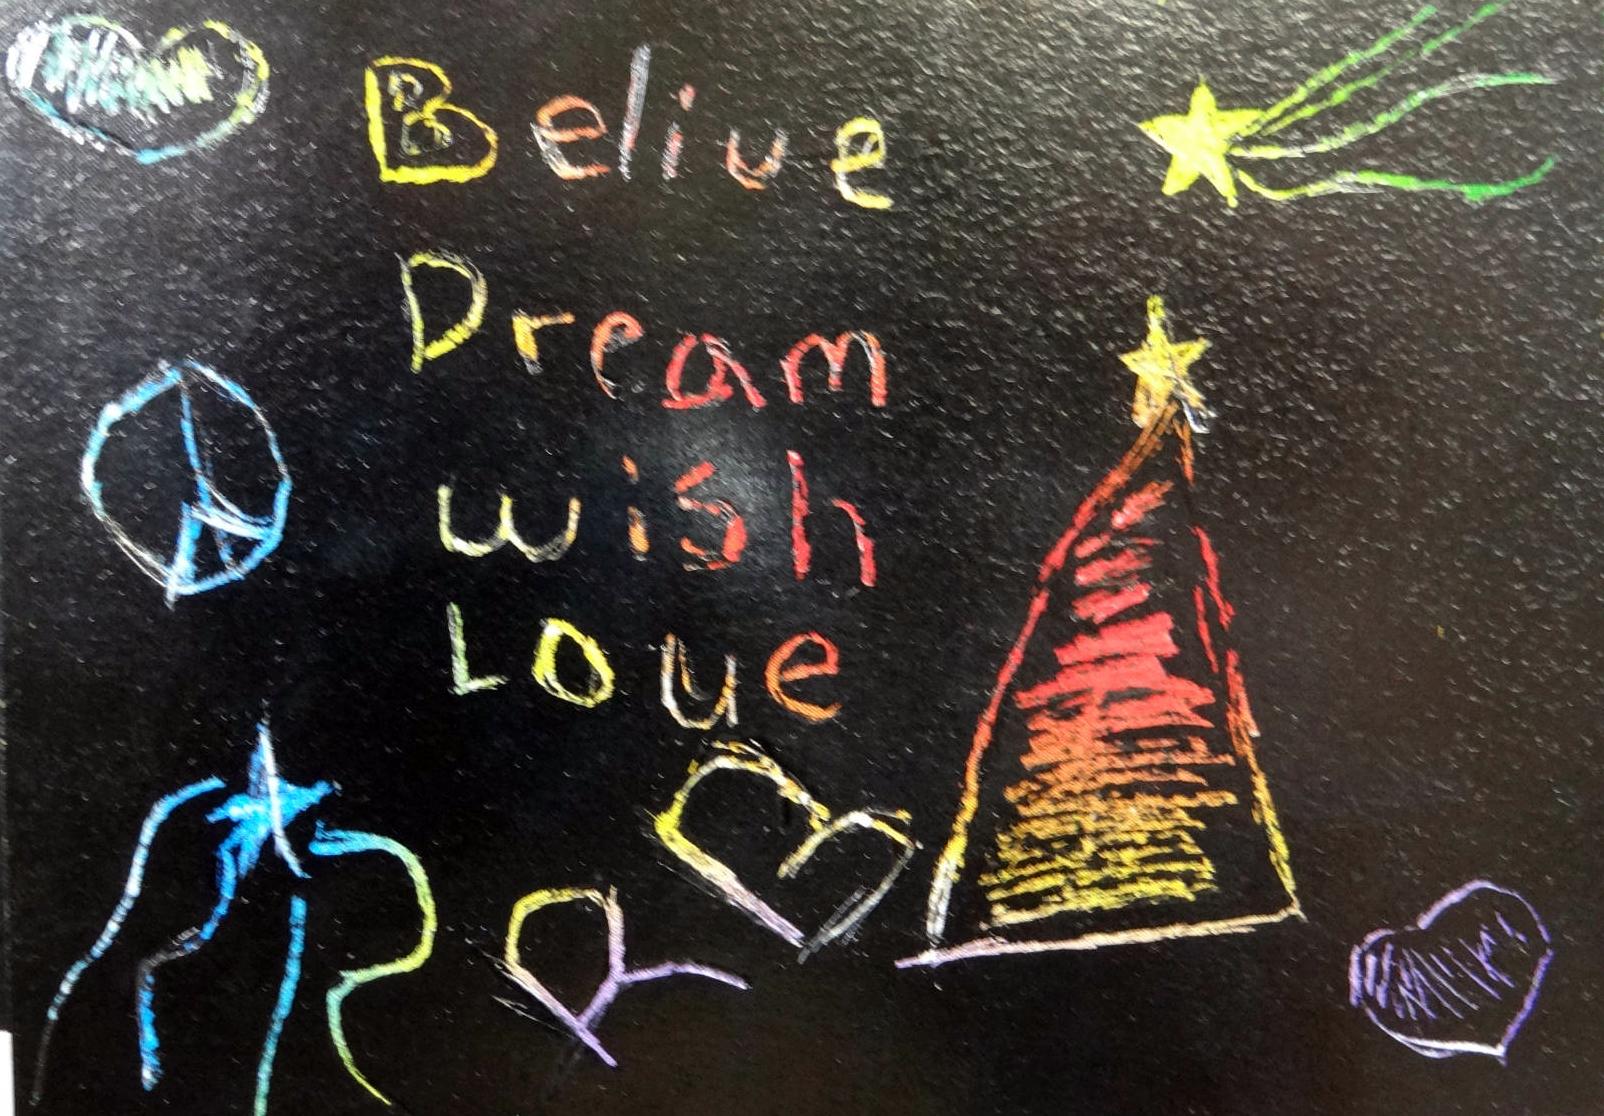 Belive
Dream
wish
Love
RB